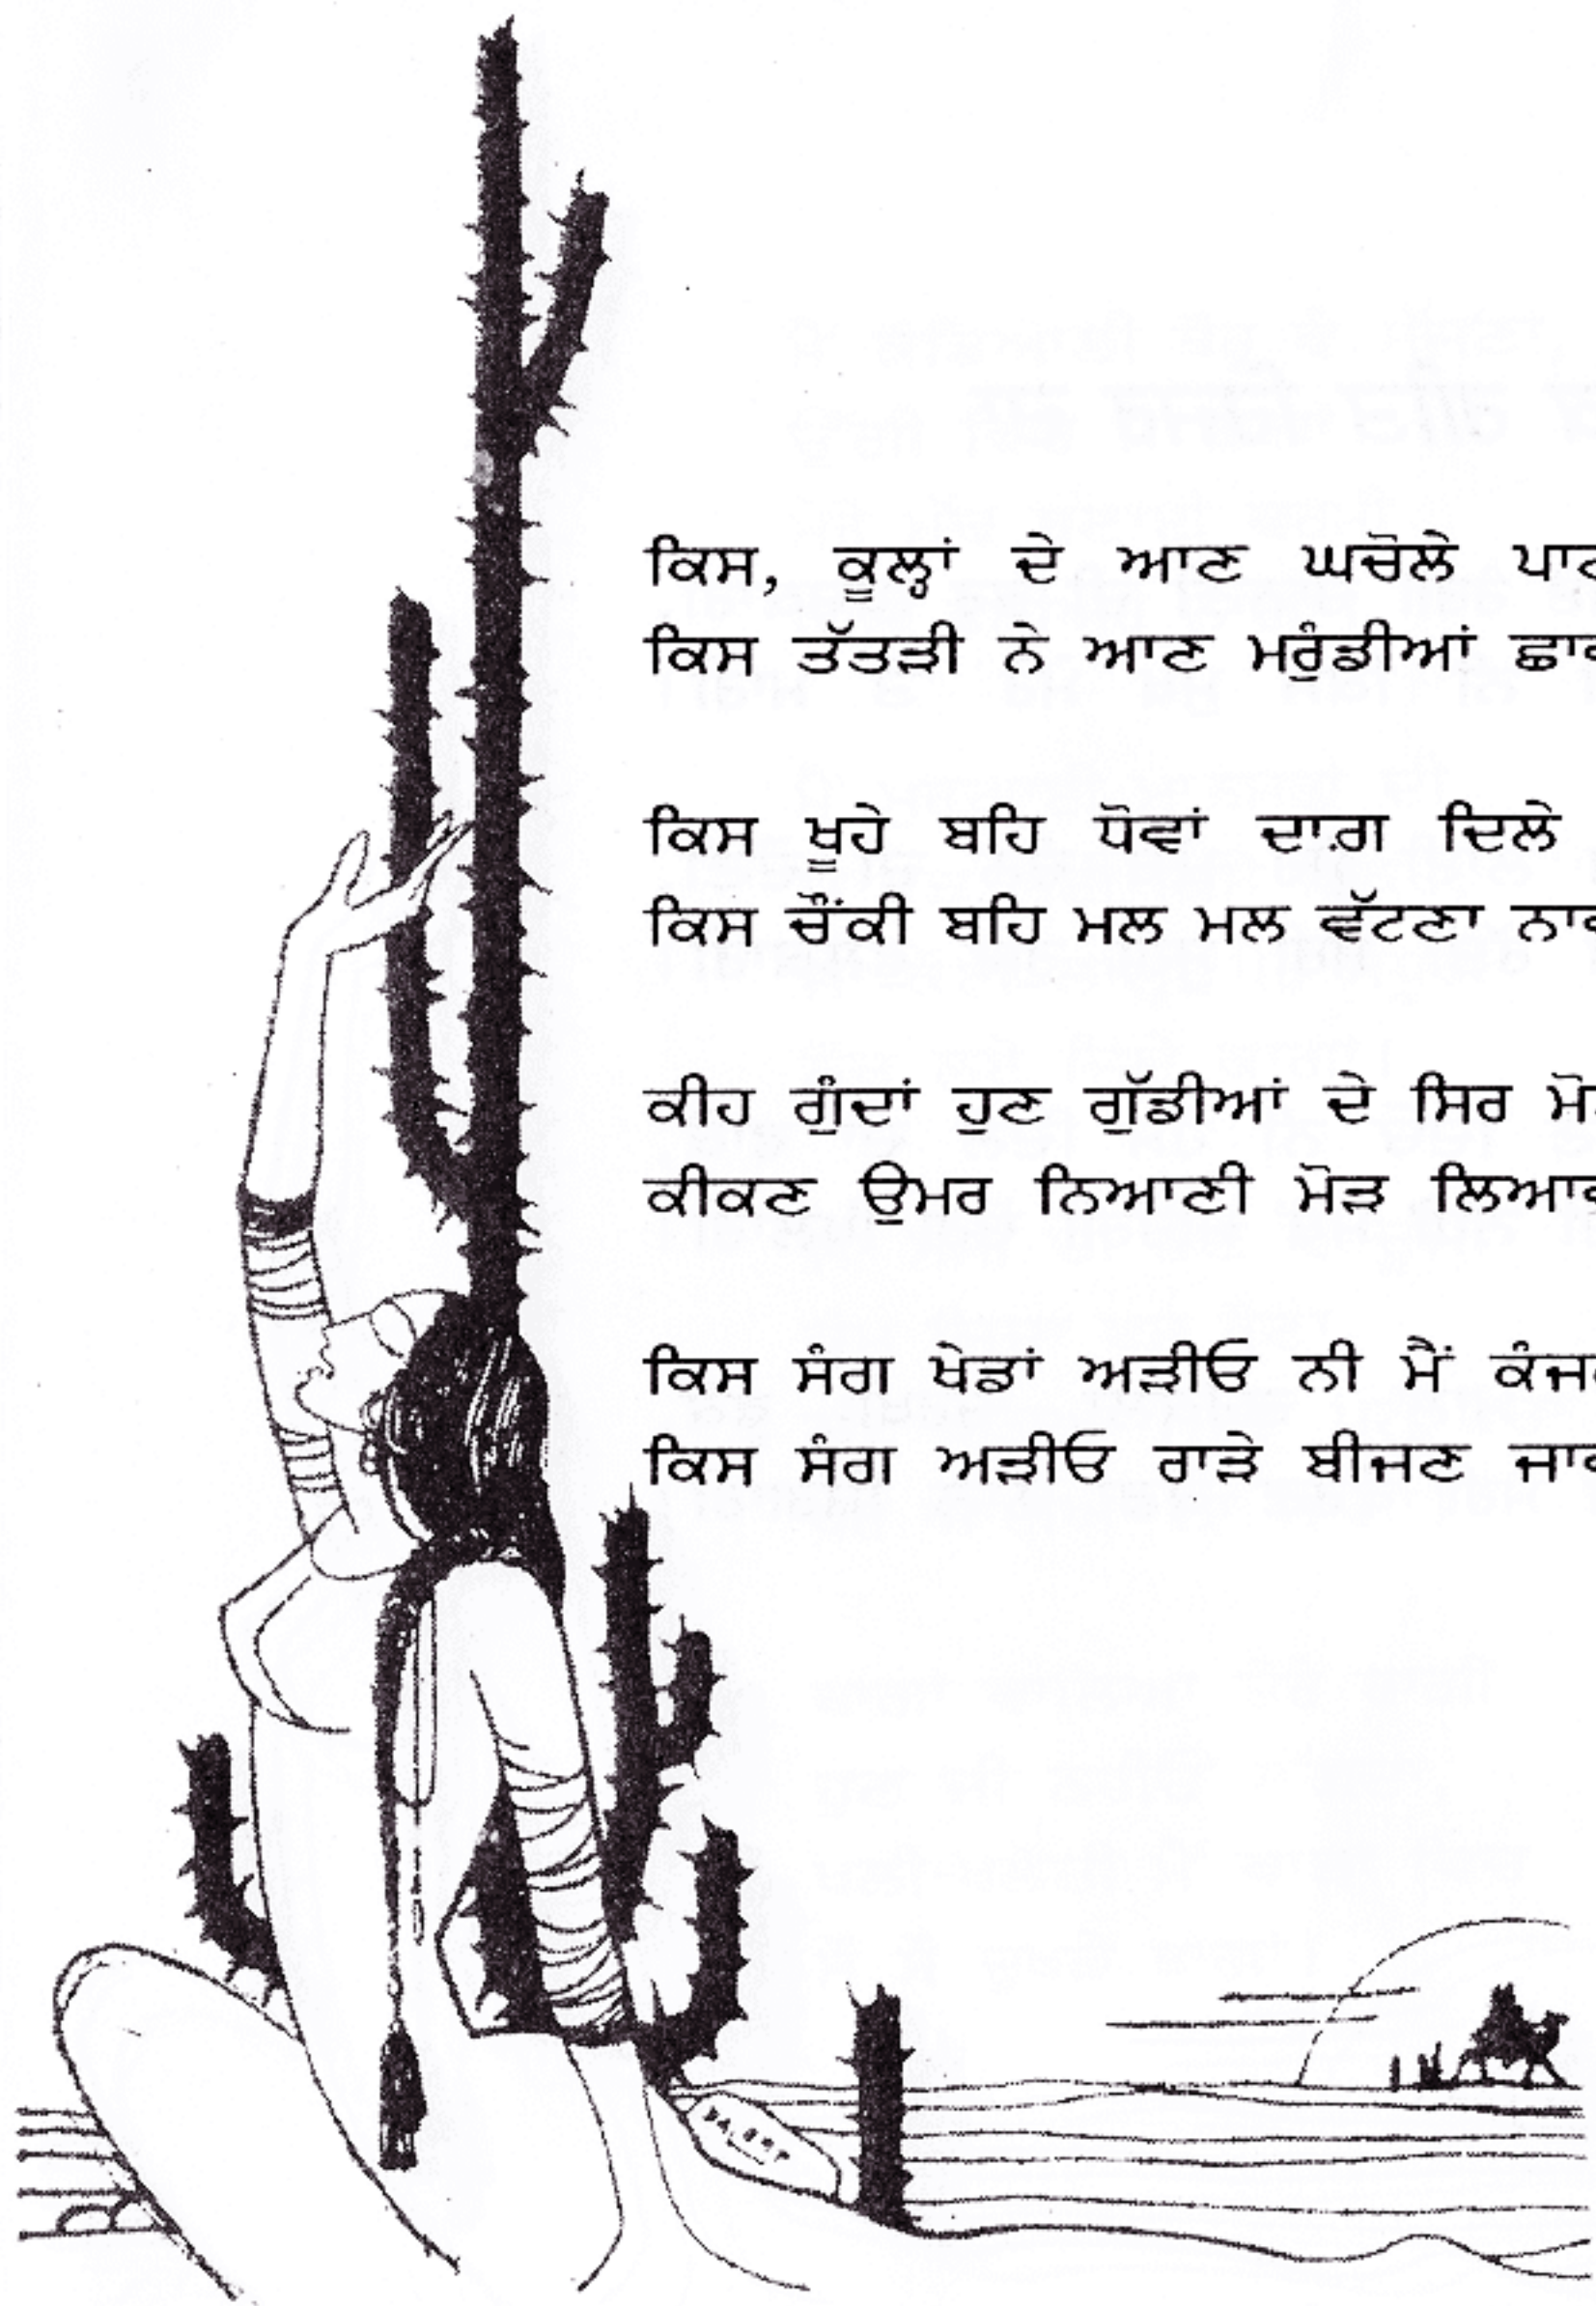 ਕਿਸ, ਕੂਲ੍ਹਾਂ ਦੇ ਆਣ ਘਚੋਲੇ
ਕਿਸ ਤੱਤੜੀ ਨੇ ਆਣ ਮਰੁੰਡੀਆਂ
ਕਿਸ ਖੂਹੇ ਬਹਿ ਧੋਵਾਂ ਦਾਗ਼ ਦਿਲੇ
ਕਿਸ ਚੌਂਕੀ ਬਹਿ ਮਲ ਮਲ ਵੱਟਣਾ
ਕੀਹ ਗੁੰਦਾਂ ਹੁਣ ਗੁੱਡੀਆਂ ਦੇ ਸਿਰ
ਕੀਕਣ ਉਮਰ ਨਿਆਣੀ ਮੋੜ
ਕਿਸ ਸੰਗ ਖੇਡਾਂ ਅੜੀਓ ਨੀ ਮੈਂ
ਕਿਸ ਸੰਗ ਅੜੀਓ ਰਾੜੇ ਬੀਜਣ